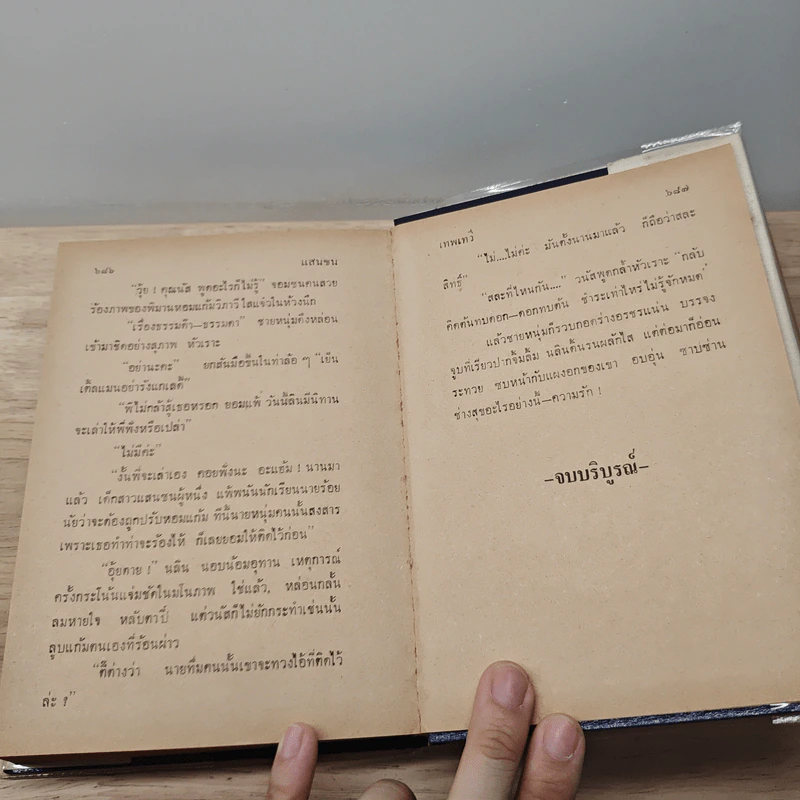 ๖๘๖ แสนซน
"วุ้ย ! คุณนัส พูดอะไรก็ไม่รู้" จอมซนคนสวย
ร้องภาพของพิมานหอมแก้มวิภารีใสแจ๋วในห้วงนึก
"เรื่องธรรมด๊า—ธรรมดา" ชายหนุ่มดึงหล่อน
เข้ามาชิดอย่างสุภาพ หัวเราะ
"อย่านะคะ" ยกสันมือขึ้นในท่าล้อ ๆ "เย็น
เติ้ลแมนอย่ารังแกเลดี้"
"พี่ไม่กล้าสู้เธอหรอก ยอมแพ้ วันนี้ลินมีนิทาน
จะเล่าให้พี่ฟังหรือเปล่า"
"ไม่มีค่ะ"
"งั้นพี่จะเล่าเอง คอยฟังนะ อะแฮ้ม ! นานมา
แล้ว เด็กสาวแสนซนผู้หนึ่ง แพ้พนันนักเรียนนายร้อย
นัยว่าจะต้องถูกปรับหอมแก้ม ทีนี้นายหนุ่มคนนั้นสงสาร
เพราะเธอทำท่าจะร้องไห้ ก็เลยยอมให้ติดไว้ก่อน"
"อุ๊ยตาย !" นลิน นอบน้อมอุทาน เหตุการณ์
ครั้งกระโน้นแจ่มชัดในมโนภาพ ใช่แล้ว, หล่อนกลั้น
ลมหายใจ หลับตาปี๋ แต่วนัสก็ไม่ยักกระทำเช่นนั้น
ลูบแก้มตนเองที่ร้อนผ่าว
"ก็ต่างว่า นายที่มคนนั้นเขาจะทวงไอ้ที่ติดไว้
ล่ะ ?"
เทพเทวี ๖๘๗
"ไม่....ไม่ค่ะ มันตั้งนานมาแล้ว ก็ถือว่าสละ
สิทธิ์"
"สละที่ไหนกัน...." วนัสพูดกลั้วหัวเราะ "กลับ
คิดต้นทบดอก—ดอกทบต้น ชำระเท่าไหร่ไม่รู้จักหมด"
แล้วชายหนุ่มก็รวบกอดร่างอรชรแน่น บรรจง
จูบที่เรียวปากจิ้มลิ้ม นลินดิ้นรนผลักไส แต่ต่อมาก็อ่อน
ระทวย ซบหน้ากับแผงอกของเขา อบอุ่น ซาบซ่าน
ช่างสุขอะไรอย่างนี้—ความรัก !
–จบบริบูรณ์–